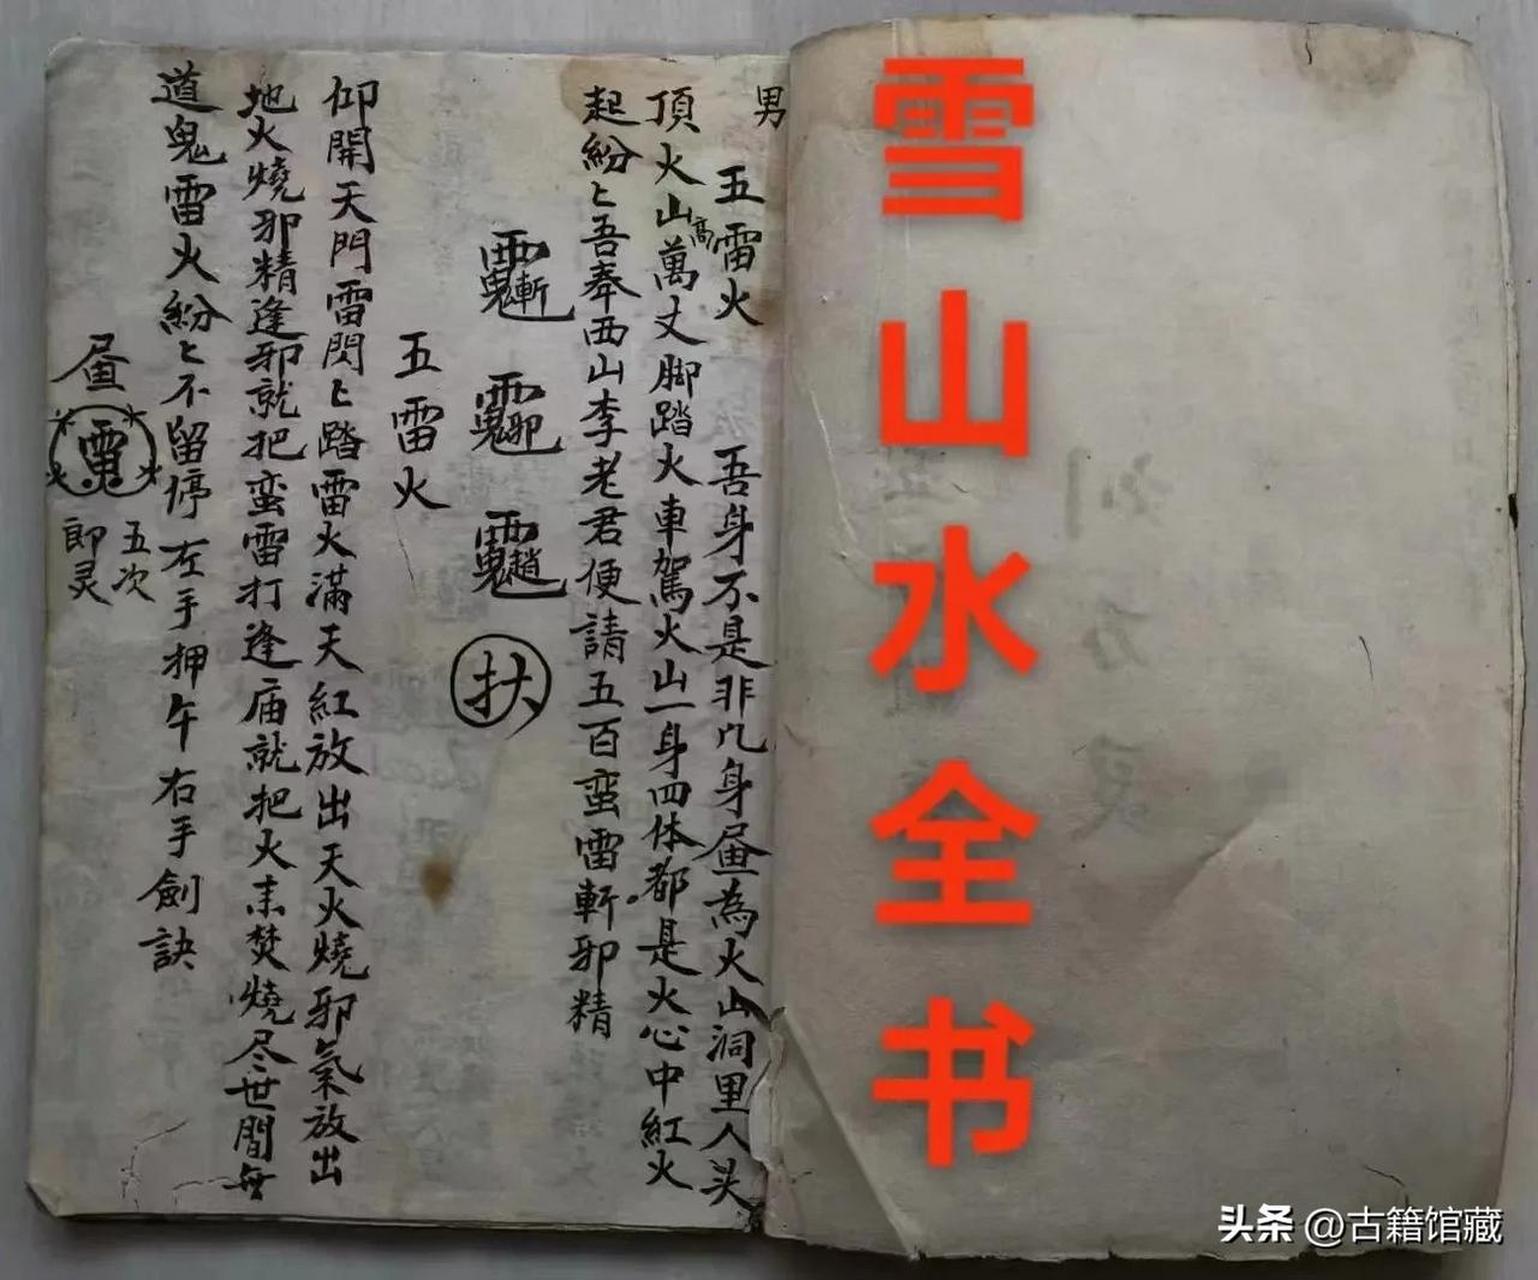 雪山水全书
男
五雷火 吾身不是非凡身 為火山洞里人头
頂火山高萬丈脚踏火車駕火山一身四体都是火心中紅火
起紛〻吾奉西山李老君便請五百蛮雷斬邪精
扶
五雷火
仰開天門雷閃〻踏雷火滿天紅放出天火燒邪氣放出
地火燒邪精逢邪就把蛮雷打逢庙就把火来焚燒尽世間無
道鬼雷火紛〻不留停左手押午右手劍訣
五次
即灵
头条 @古籍馆藏